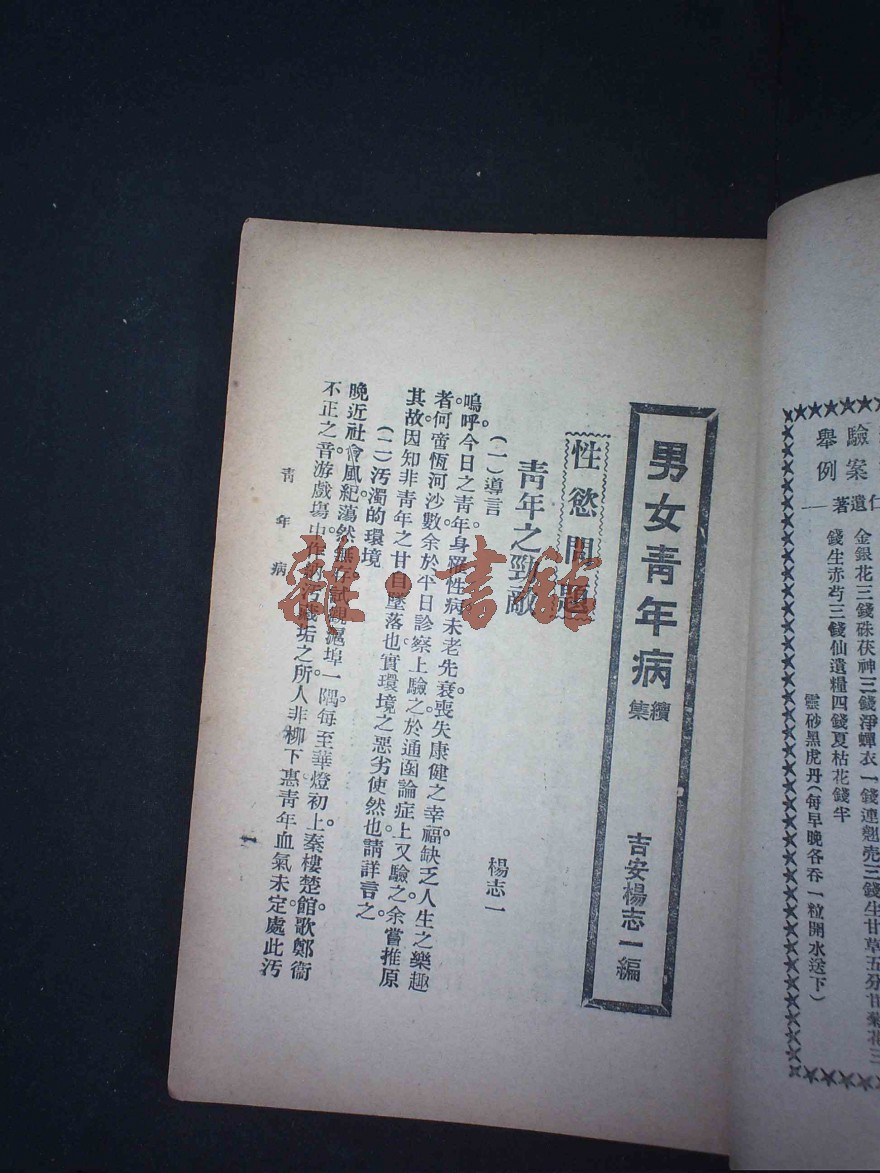 驗案
舉例
仁遺著
金銀花三錢硃茯神三錢淨蟬衣一錢連翹壳三錢生甘草五分甘菊花三
錢生赤芍三錢仙遺糧四錢夏枯花錢半
靈砂黑虎丹(每早晚各吞一粒開水送下)
男女青年病續集 吉安楊志一編
性慾問題
青年之勁敵
楊志一
(一)導言
嗚呼。今日之青年身罹性病未老先衰。喪失康健之幸福。缺乏人生之樂趣
者。何啻恆河沙數。余於平日診察上驗之。於通函論症上又驗之。余嘗推原
其故。因知非青年之甘自墮落也。實環境之惡劣使然也。請詳言之
(二)汚濁的環境
晚近社會風紀蕩然無存。試觀滬埠一隅。每至華燈初上。秦樓楚館。歌鄭衞
不正之音。游戲場中。作納汚藏垢之所。人非柳下惠。青年血氣未定。處此汚
青年病
一
雜·書館